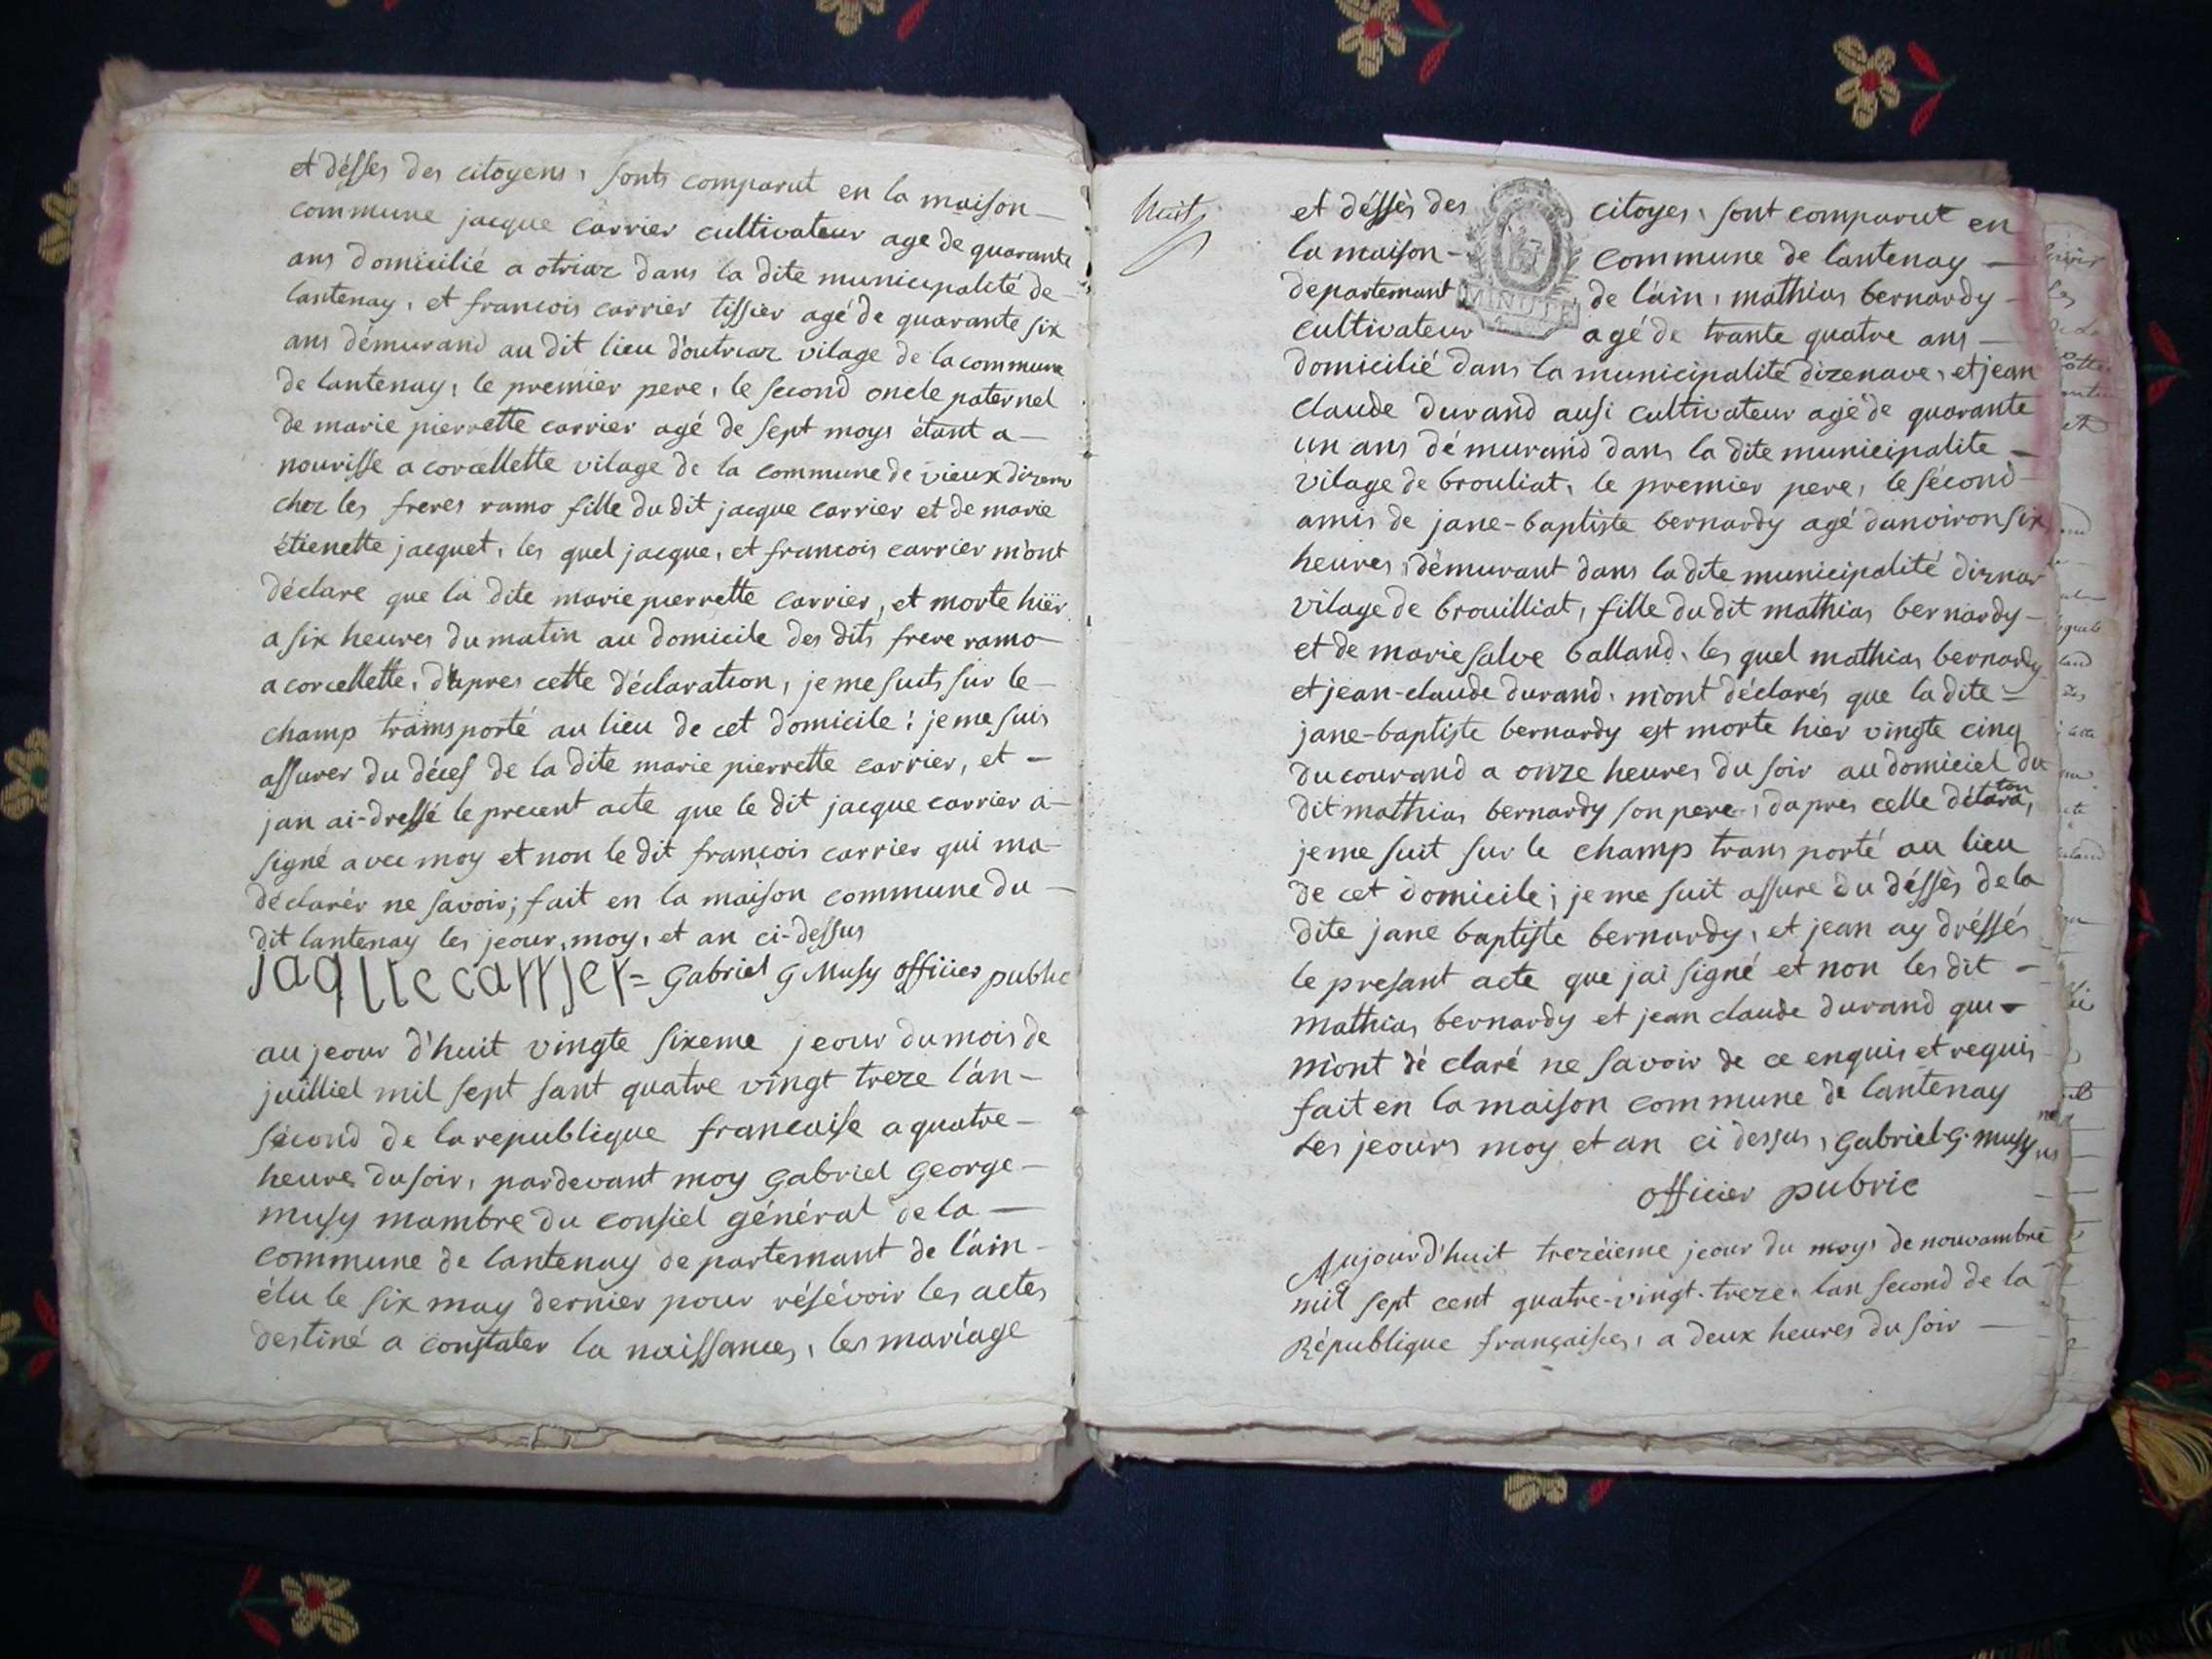 et désses des citoyens, sonts comparut en la maison
commune jacque carrier cultivateur age de quarante
ans domicilié a otriaz dans la dite municipalité de
lantenay, et francois carrier tissier agé de quarante six
ans démurand au dit lieu d'outriaz vilage de la commune
de lantenay, le premier pere, le second oncle paternel
de marie pierrette carrier agé de sept moys étant a
nourisse a corcellette vilage de la commune de vieux
chez les freres ramo fille du dit jacque carrier et de marie
étienette jacquet, les quel jacque, et francois carrier m'ont
déclare que la dite marie pierrette carrier, et morte hiër
a six heures du matin au domicile des dits frere ramo
a corcellette, d'apres cette déclaration, je me suits sur le
champ transporté au lieu de cet domicile : je me suis
assurer du déces de la dite marie pierrette carrier, et
jan ai-dressé le precent acte que le dit jacque carrier a
signé avec moy et non le dit françois carrier qui ma
déclarér ne savoir; fait en la maison commune du
dit lantenay les jeour, moy, et an ci-dessus
jaque carrier = Gabriel G Musy officier public
au jeour d'huit vingte sixeme jeour du mois de
juilliel mil sept sant quatre vingt treze l'an
sécond de la republique francaise a quatre
heure du soir, pardevant moy Gabriel George
musy mambre du consiel général de la
commune de lantenay departemant de l'ain
élu le six may dernier pour résévoir les actes
destiné a constater la naissances, les mariage
huit
et déssès des citoyes, sont comparut en
la maison commune de lantenay
departemant de l'ain, mathias bernardy
MINUTE
cultivateur agé de trante quatre ans
domicilié dans la municipalité dizenave, et jean
claude durand ausi cultivateur agé de quarante
un ans démurand dans la dite municipalite
vilage de brouliat, le premier pere, le sécond
amis de jane-baptiste bernardy agé danoiron six
heures, démurant dans la dite municipalité diznav
vilage de brouilliat, fille du dit mathias bernardy
et de marie salve balland, les quel mathias bernardy
et jean-claude durand, m'ont déclarés que la dite
jane-baptiste bernardy est morte hier vingte cinq
du courand a onze heures du soir au domiciel du
dit mathias bernardy son pere, dapres celle déclaraton,
je me suit sur le champ trans porté au lieu
de cet domicile; je me suit assure du déssès de la
dite jane baptiste bernardy, et jean ay dréssés
le presant acte que jai signé et non les dit
mathias bernardy et jean claude durand qui
m'ont dé claré ne savoir de ce enquis et requis
fait en la maison commune de lantenay
Les jeours moy et an ci dessus, Gabriel-G. musy
officier pubric
Aujourd'huit trezéieme jeour du moys de nouvambre
mil sept cent quatre-vingt-treze, lan second de la
République françaises, a deux heures du soir